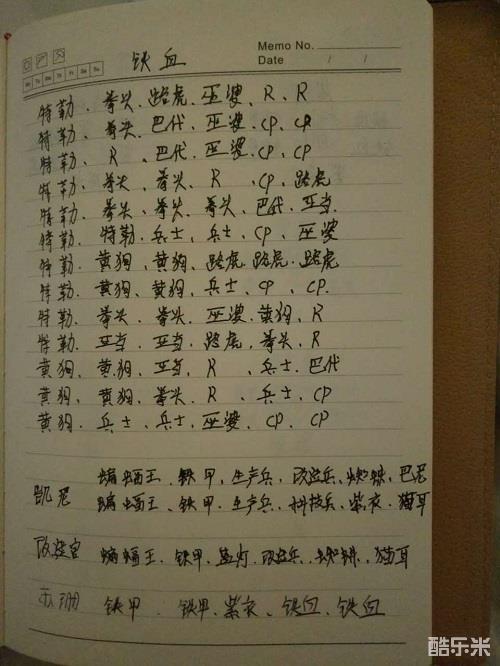 铁血
Memo No.
Mo Tu We Th Fr Sa Su
Date / /
特勒、拳头、路虎、巫婆、R、R
特勒、拳头、巴代、巫婆、CP、CP
特勒、R、巴代、巫婆、CP、CP
特勒、拳头、拳头、R、CP、路虎
特勒、拳头、拳头、拳头、巴代、巫当
特勒、特勒、兵士、兵士、CP、巫婆
特勒、黄狗、黄狗、路虎、路虎、路虎
特勒、黄狗、黄狗、兵士、CP、CP.
特勒、拳头、拳头、巫婆、黄狗、R
特勒、巫当、巫当、路虎、拳头、R
黄狗、黄狗、巫当、R、兵士、巴代
黄狗、黄狗、拳头、R、兵士、CP
黄狗、兵士、兵士、巫婆、CP、CP
蝙蝠王、铁甲、生产兵、改造兵、蜘蛛、巴尼
凯尼
蝙蝠王、铁甲、生产兵、科技兵、紫衣、猫耳
改造官 蝙蝠王、铁甲、改造兵、蜘蛛、猫耳
铁甲、铁甲、紫衣、铁血、铁血
酷乐米